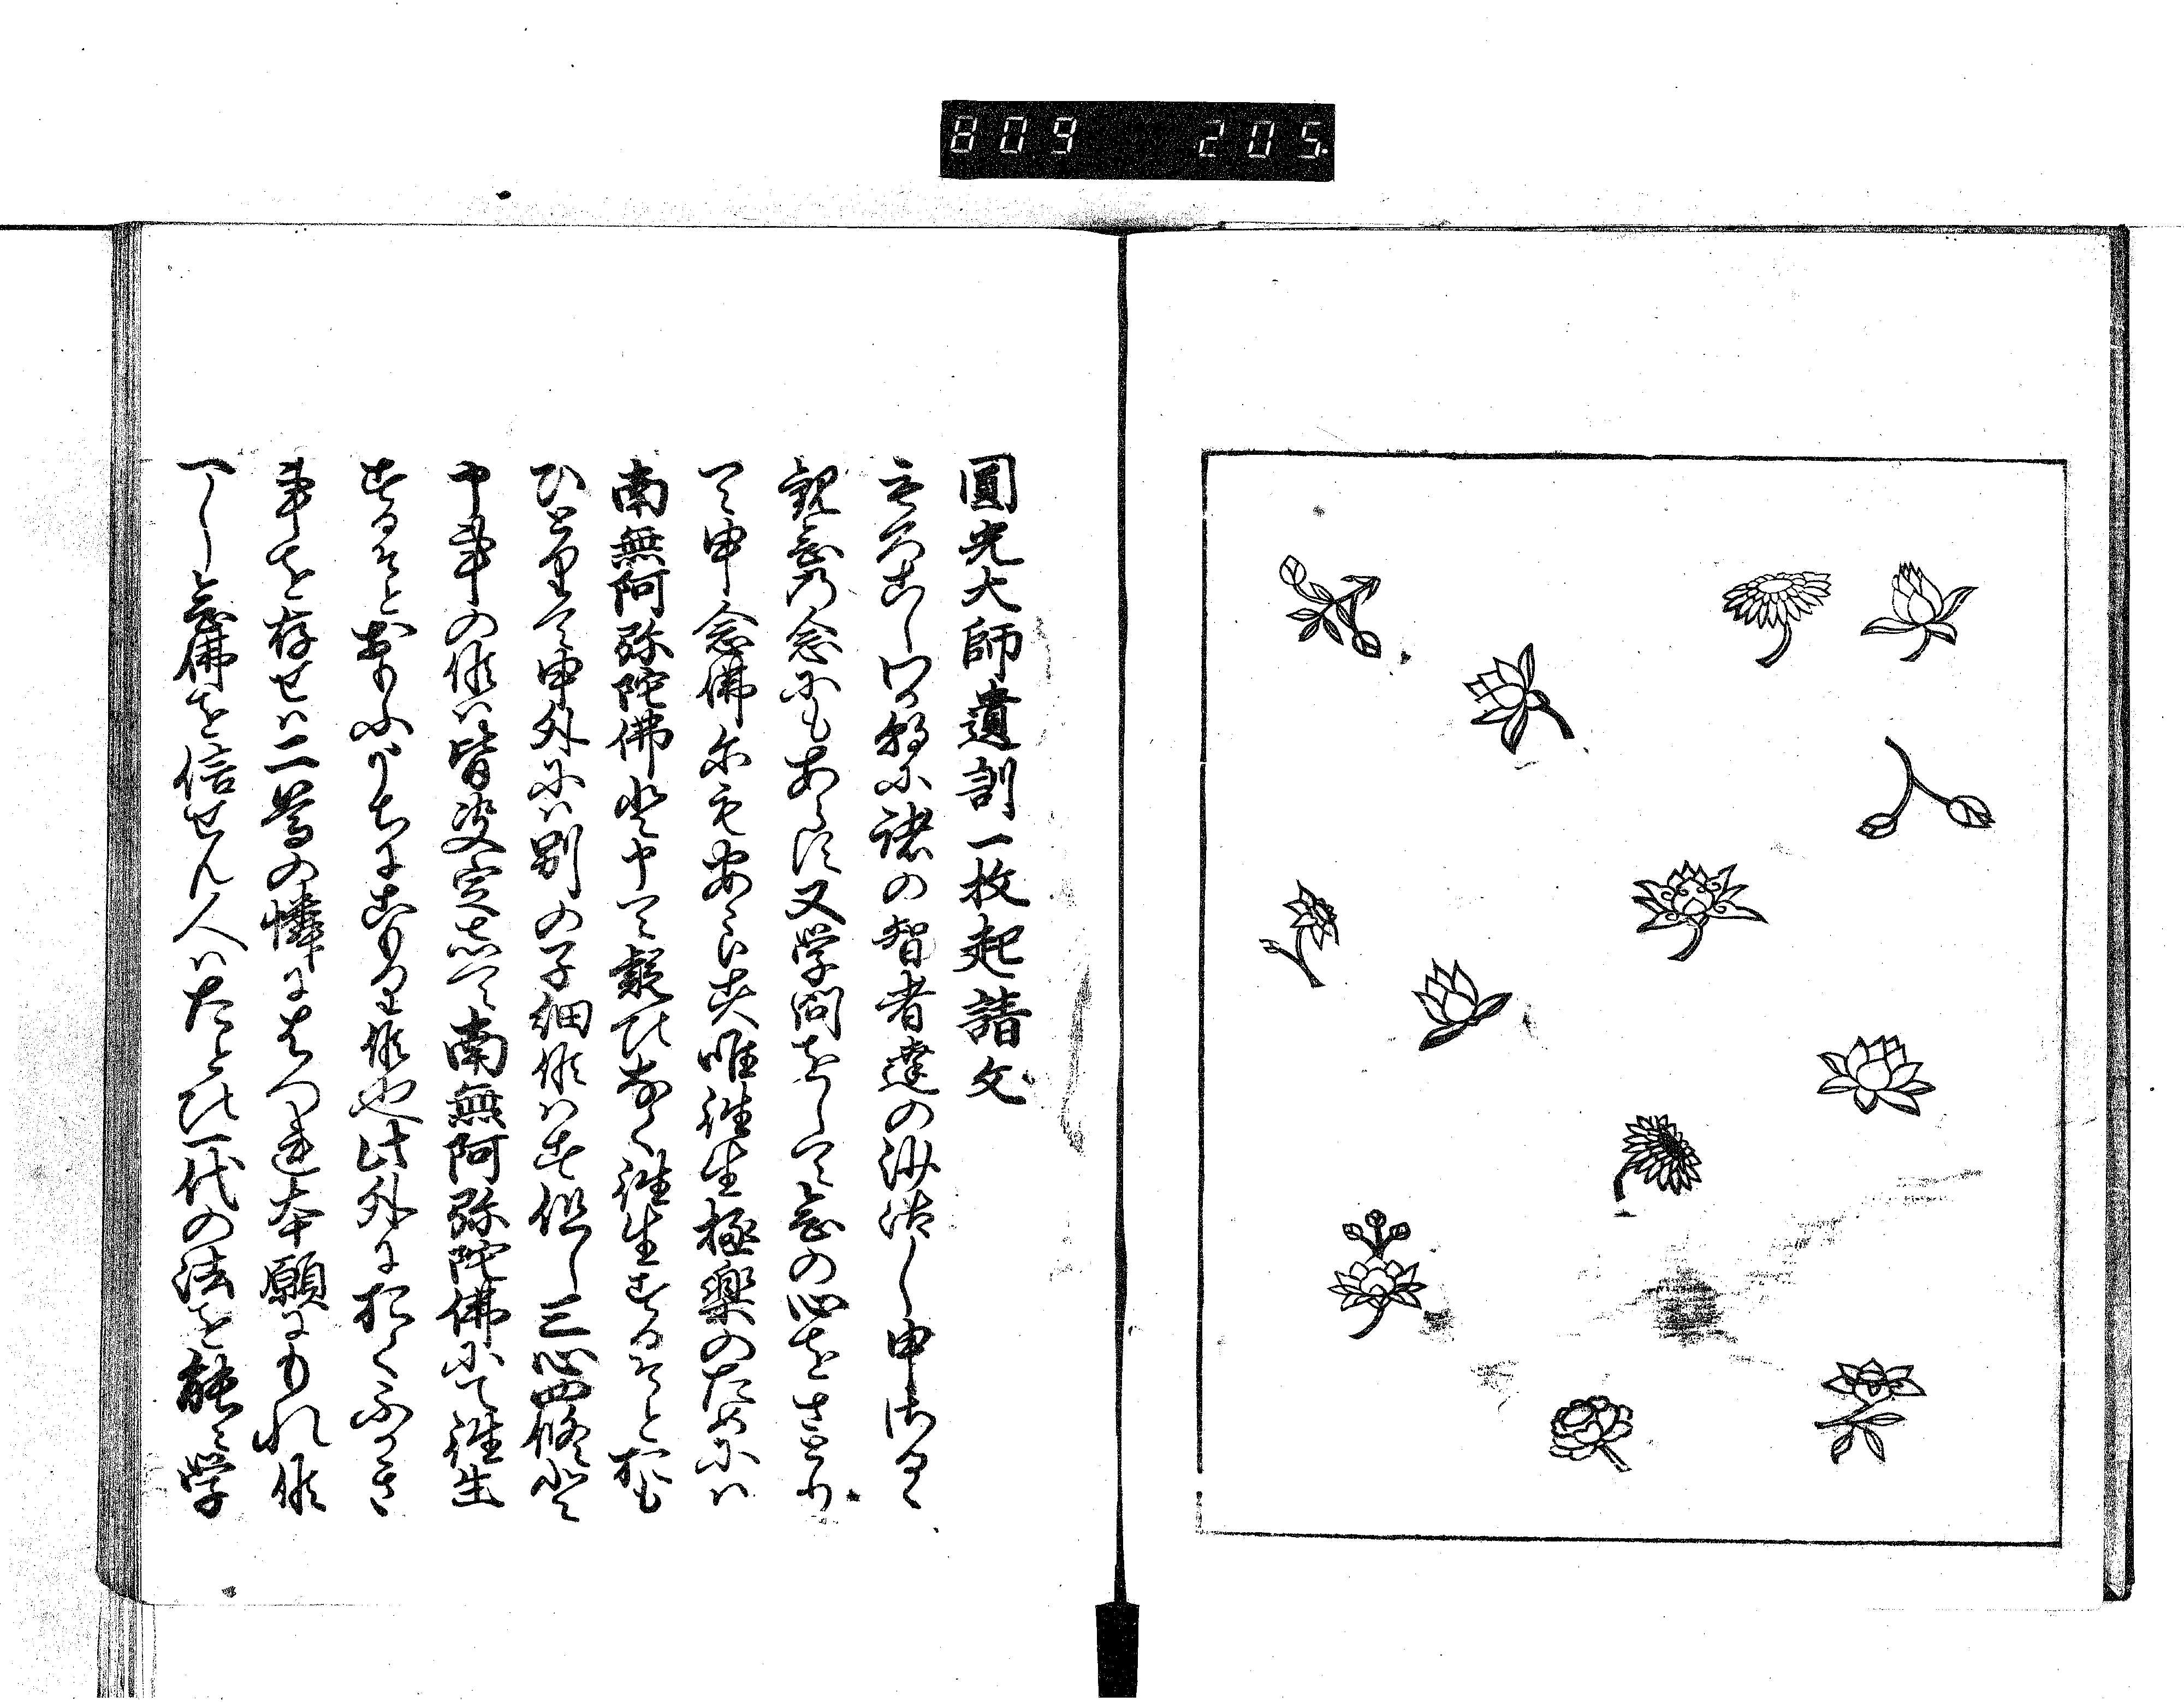 809 205
圓光大師遺訓一枚起請文
もろこし我朝に諸の智者達の沙汰し申さるゝ
観念の念にもあらす又学問をして念の心をさとり
て申念佛にも安らす唯往生極楽のために八
南無阿弥陀佛と申て疑ひなく往生するそと思
ひとりて申外に八別の子細候八す但し三心四修と
申事の候八皆決定して南無阿弥陀佛にて往生
するそとおもふうちにこもり候也此外におくふかき
事を存せ八二尊の憐にはつれ本願にもれ候
へし念佛を信せん人八たとひ一代の法を能々学